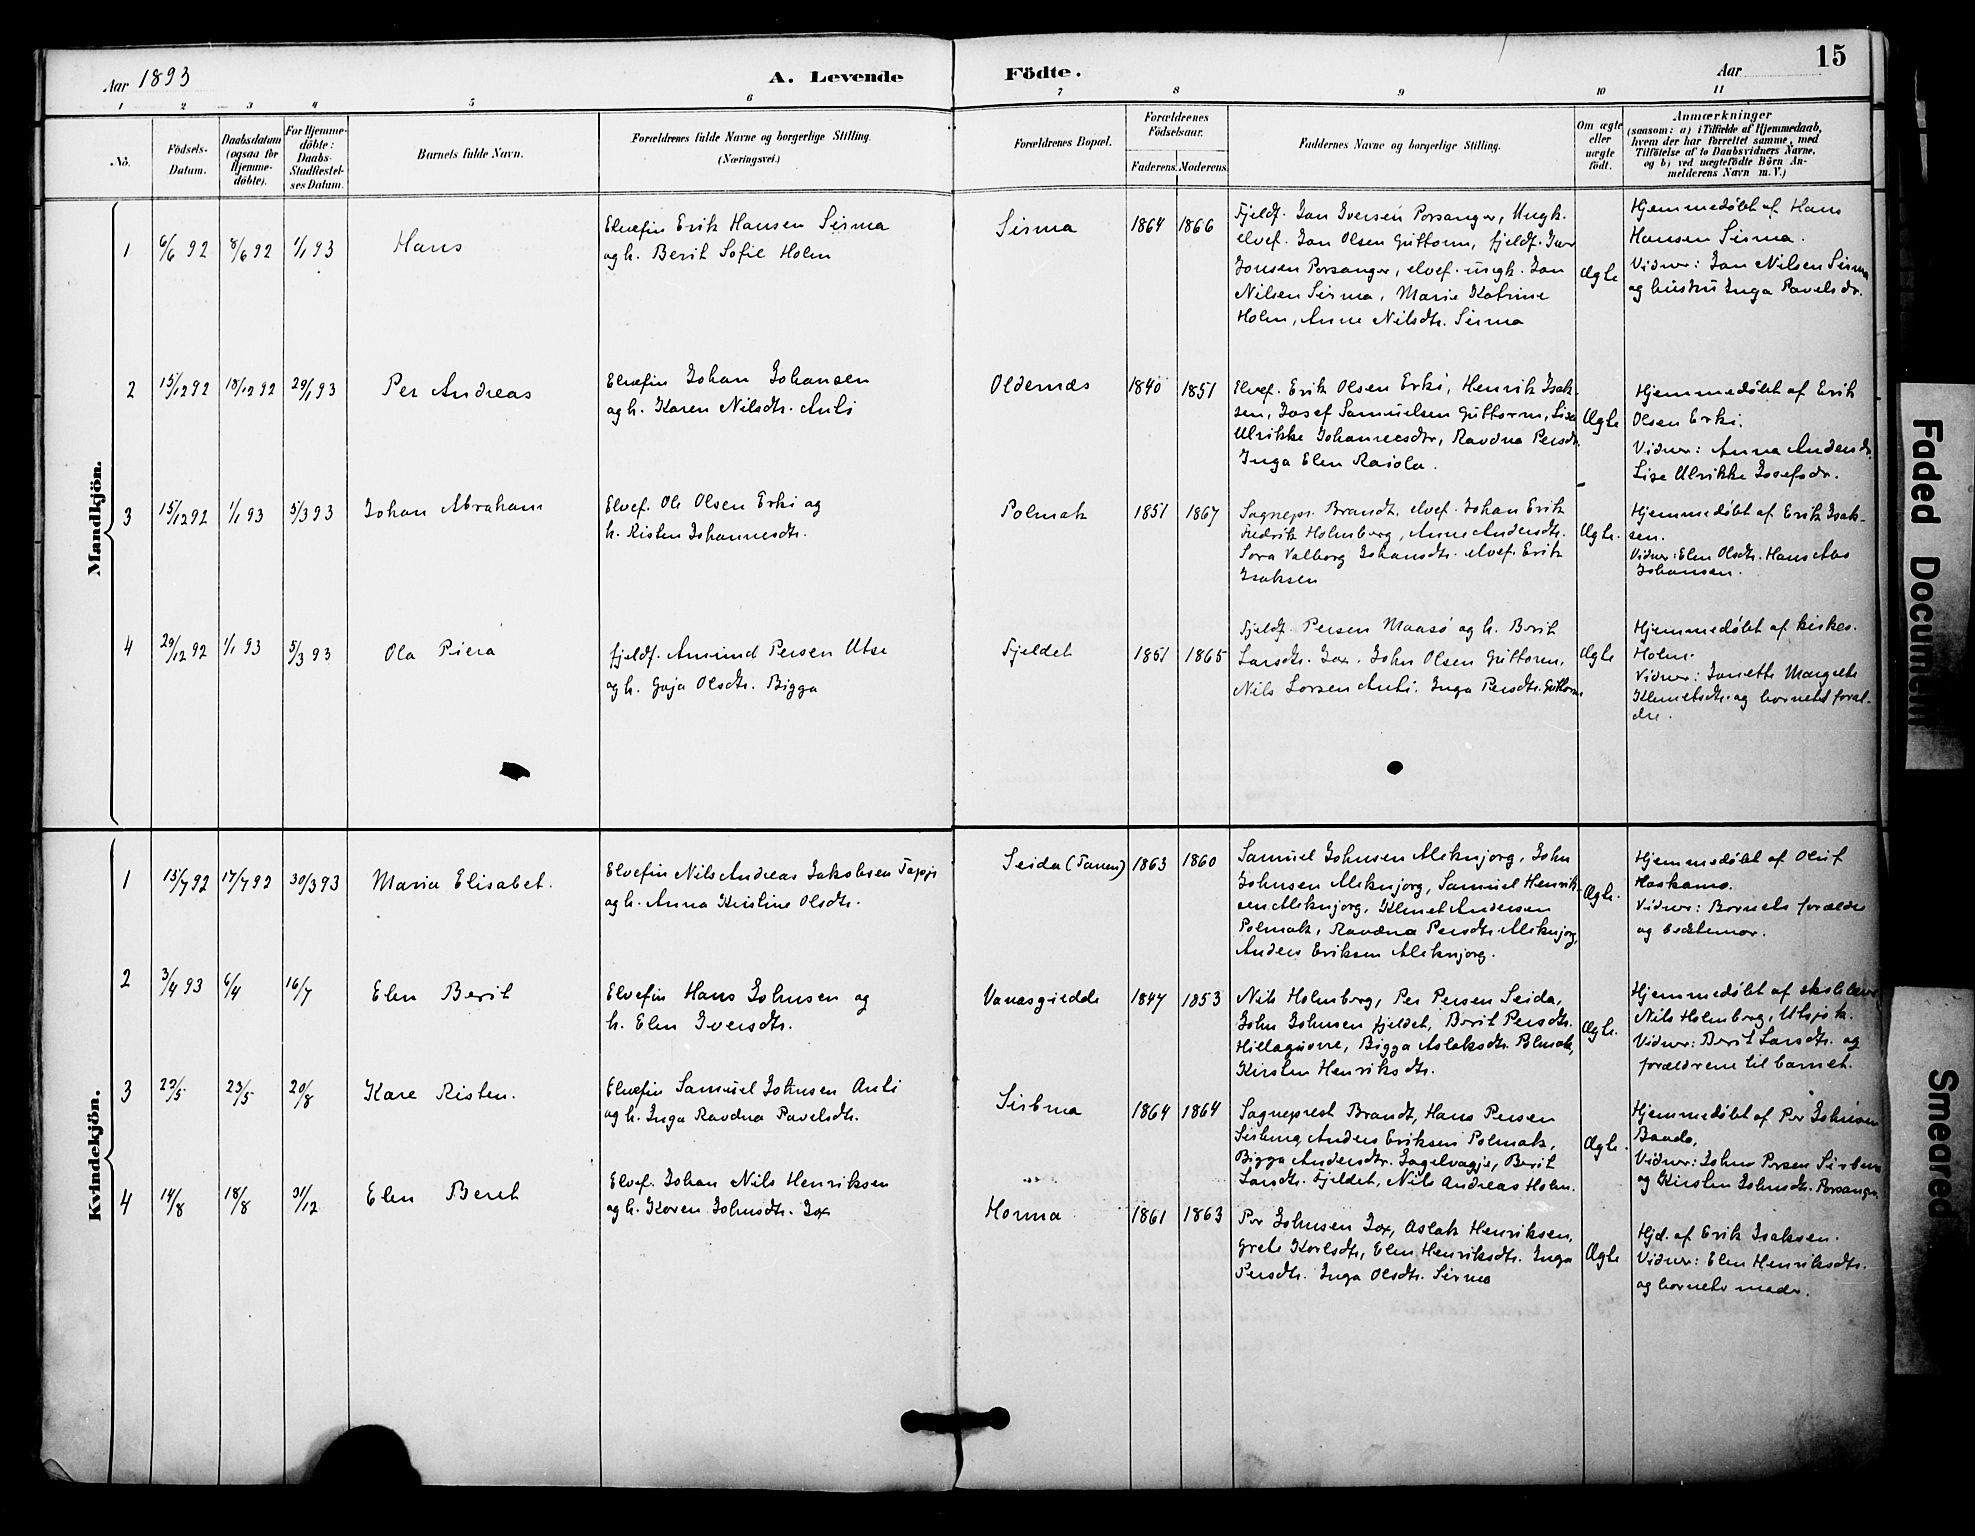 Aar 1893
A. Levende
Födte.
Aar
15
1 2 3 4 5 6 7 8 9 10 11
No.
Födsels-
Datum.
Daabsdatum
(ogsaa for
Hjemme-
döbte).
For Hjemme-
döbte:
Daabs-
Stadfæstel-
ses Datum.
Barnets fulde Navn.
Forældrenes fulde Navne og borgerlige Stilling.
(Næringsvei.)
Forældrenes Bopæl.
Forældrenes
Födselsaar.
Faderens.
Moderens.
Faddernes Navne og borgerlige Stilling.
Om ægte
eller
uægte
födt.
Anmærkninger
(saasom: a) i Tilfælde af Hjemmedaab,
hvem der har forrettet samme, med
Tilföielse af to Daabsvidners Navne,
og b) ved uægtefödte Börn An-
melderens Navn m. V.)
Mandkjön.
1
6/6 92
8/6 92
1/1 93
Hans
Elvefin Erik Hansen Sirma
og h. Berit Sofie Holm
Sirma
1864
1866
Fjeldf. Jon Iversen Porsanger, Ungk.
elvef. Jon Olsen Guttorm, fjeldf. Iver
Jonsen Porsanger, elvef. ungk. Jon
Nilsen Sirma, Marie Katrine
Holm, Anne Nilsdtr. Sirma
Ægte
Hjemmedøbt af Hans
Hansen Sirma.
Vidner: Jon Nilsen Sirma
og hustru Inga Pavelsdr.
2
15/12 92
18/12 92
29/1 93
Per Andreas
Elvefin Johan Johansen
og h. Karen Nilsdtr. Anti
Oldernæs
1840
1851
Elvef. Erik Olsen Erki, Henrik Isak-
sen, Josef Samuelsen Guttorm, Lisa
Ulrikke Johannesdtr, Ravdna Persdtr.
Inga Elen Raiola.
Ægte
Hjemmedøbt af Erik
Olsen Erki.
Vidner: Anna Andersdr.
Lise Ulrikke Josefsdr.
3
15/12 92
1/1 93
5/3 93
Johan Abraham
Elvef. Ole Olsen Erki og
h. Risten Johannesdtr.
Polmak
1851
1867
Sognepr. Brandt, elvef. Johan Erik
Fredrik Holmberg, Anne Andersdtr.
Sara Valborg Johansdtr. elvef. Erik
Isaksen
Ægte.
Hjemmedøbt af Erik Isak-
sen.
Vidner: Elen Olsdtr. Hans Abs
Johansen.
4
29/12 92
1/1 93
5/3 93
Ola Piera
fjeldf. Amund Persen Utse
og h. Gaja Olsdtr. Bigga
Fjeldet
1851
1865
Fjeldf. Persen Maasø og h. Berit
Larsdtr. Jox. John Olsen Guttorm,
Nils Larsen Anti. Inga Persdtr. Guttorm
Ægte
Hjemmedøbt af kirkes.
Holm.
Vidner: Janette Margrete
Klemetsdtr. og barnets foræl-
dre.
Kvindekjön.
1
15/7 92
17/7 92
30/3 93
Maria Elisabet.
Elvefin Nils Andreas Jakobsen Tapje
og h. Anna Kristine Olsdtr.
Seida (Tanen)
1863
1860
Samuel Johnsen Aleknjorg, John
Johnsen Aleknjorg, Samuel Henrik-
sen Aleknjorg, Klemet Andersen
Polmak, Ravdna Persdtr. Aleknjorg,
Anders Eriksen Aleknjorg.
Ægte.
Hjemmedøbt af Oluf
Haskamo.
Vidner: Barnets forældre
og bedstemor.
2
3/4 93
6/4
16/7
Elen Berit
Elvefin Hans Johnsen og
h. Elen Iversdtr.
Vanasgiedde
1847
1853
Nils Holmberg, Per Persen Seida,
John Johnsen fjeldet, Berit Persdtr.
Hillaguovve, Bigga Aslaksdtr. Polmak,
Kirsten Henriksdtr.
Ægte.
Hjemmedøbt af skolelærer
Nils Holmberg, Utsjok.
Vidner: Berit Larsdtr. og
forældrene til barnet.
3
22/5
23/5
20/8
Kare Risten.
Elvefin Samuel Johnsen Anti
og h. Inga Ravdna Pavelsdtr.
Sirbma
1864
1864
Sogneprest Brandt, Hans Persen
Sirbma, Anders Eriksen Polmak,
Bigga Andersdtr. Jagelvagje, Berit
Larsdtr. Fjeldet, Nils Andreas Holm.
Ægte.
Hjemmedøbt af Per Johnsen
Baudo,
Vidner: Johns Persen Sirbma
og Kirsten Johnsdtr. Porsanger.
4
14/8
18/8
31/12
Elen Beret
Elvef. Johan Nils Henriksen
og h. Karen Johnsdtr. Jox
Horma
1861
1863
Per Johnsen Jox, Aslak Henriksen,
Grete Karlsdtr, Elen Henriksdtr. Inga
Persdtr. Inga Olsdtr. Sirma
Ægte
Hjd. af Erik Isaksen.
Vidner: Elen Henriksdtr.
og barnets moder.
Faded Document
Smeared